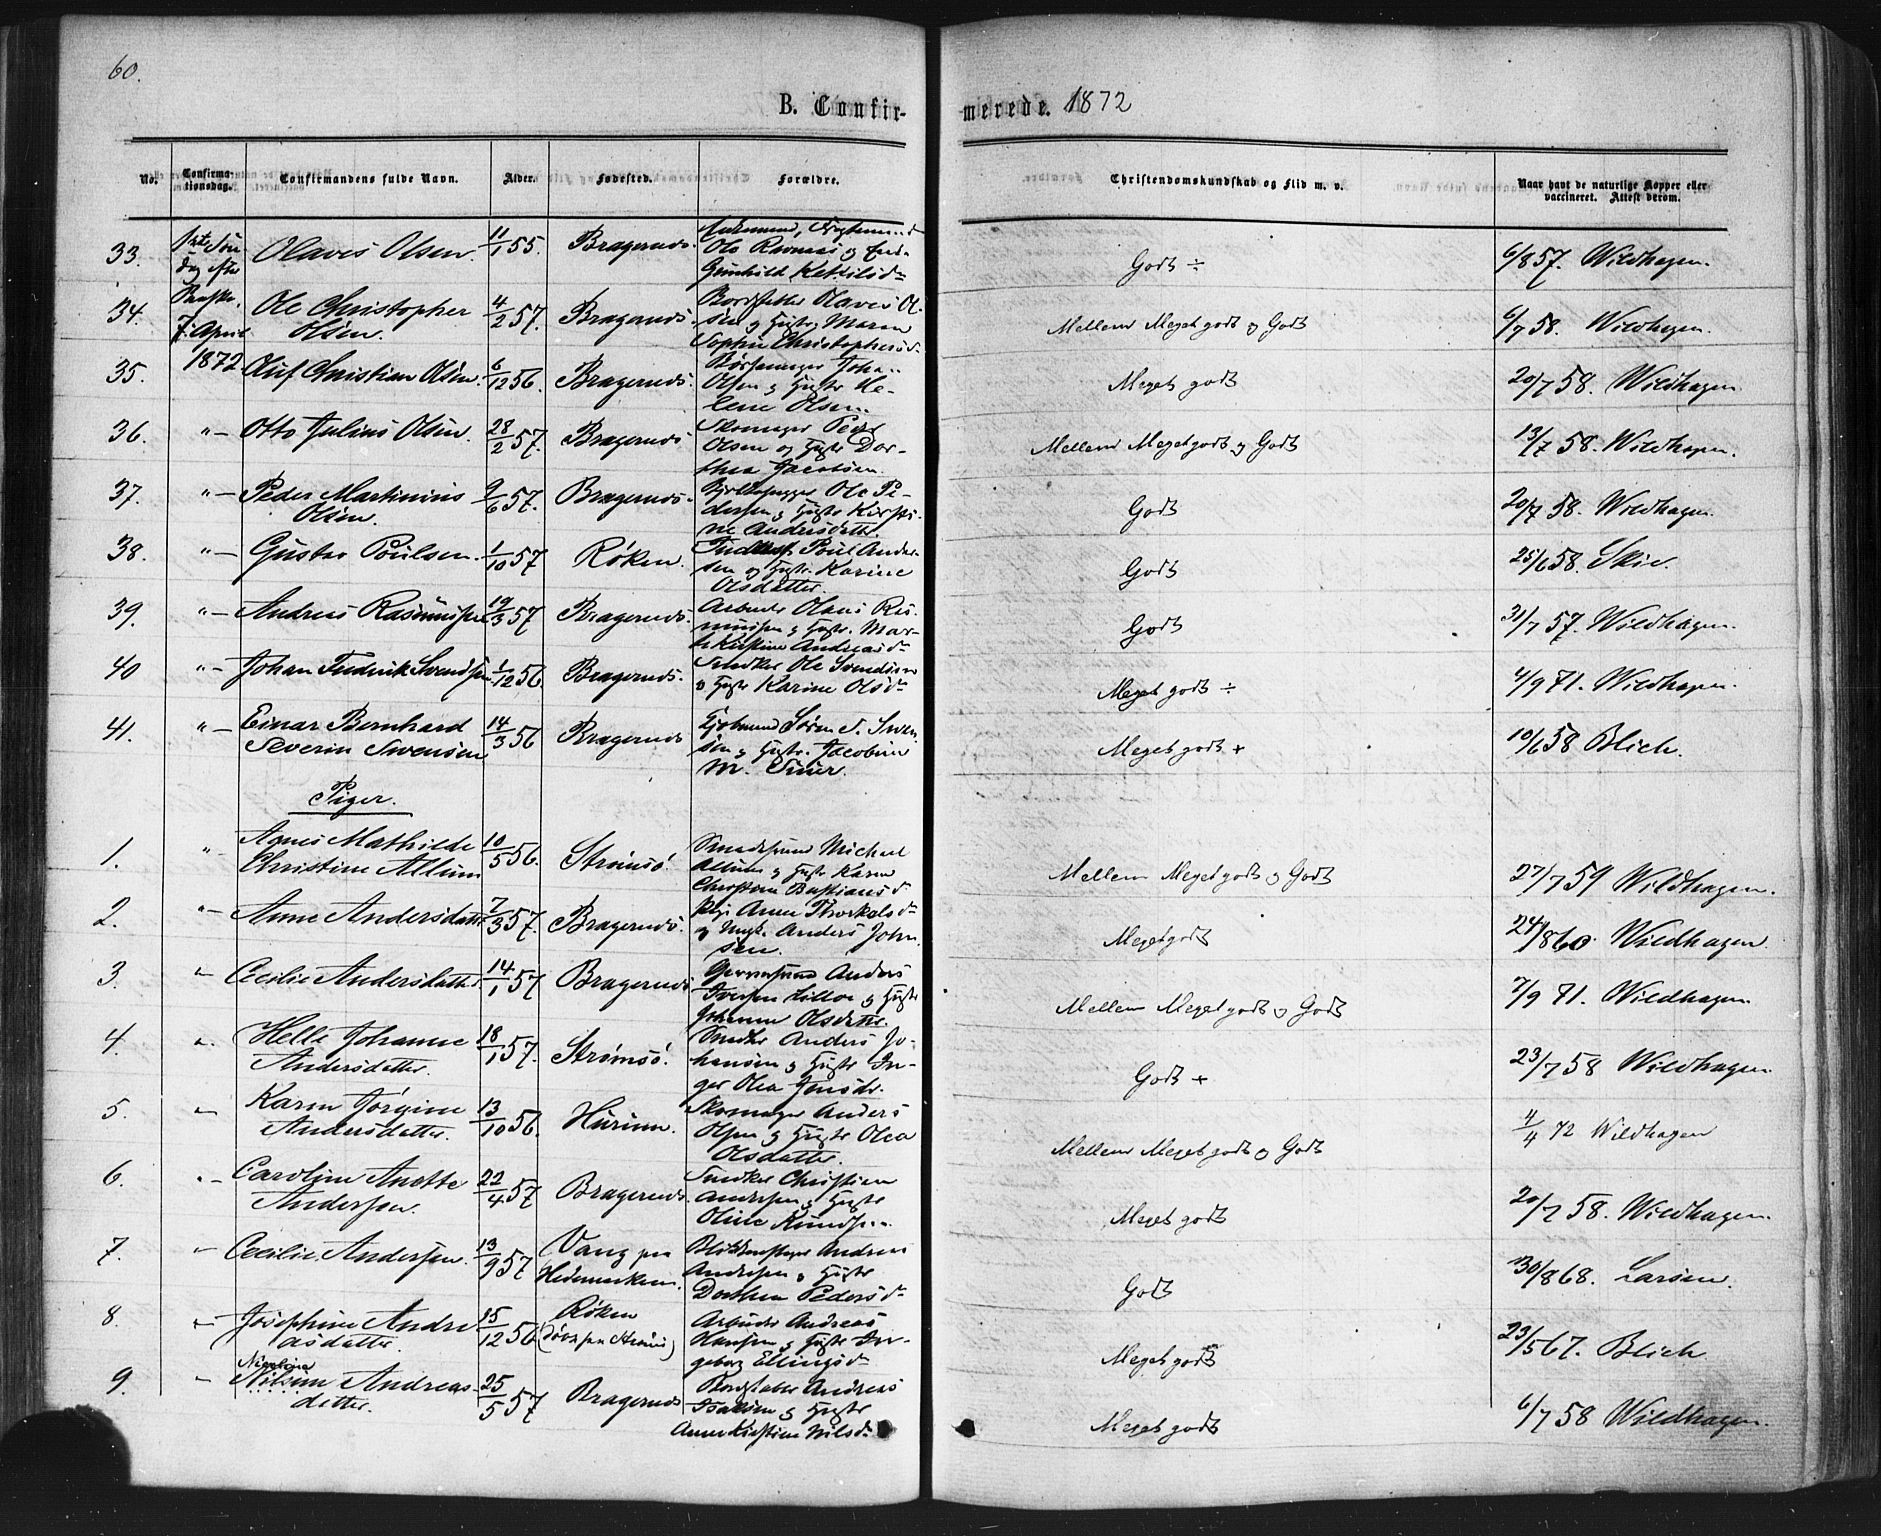 60.
B. Confir-
merede. 1872
No.
Confirma-
tionsdag.
Confirmandens fulde Navn.
Alder.
Fødested.
Forældre.
Christendomskundskab og Flid m. v.
Naar havt de naturlige Kopper eller
vaccineret. Attest derom.
33.
1ste Søn-
dag efter
Paaske,
7. April
1872
Olaves Olsen.
11/1 55.
Bragernæs.
Ole Ravnaas og
Gunhild Kettilsd.
Godt ÷
6/8 57. Wildhagen.
34.
Ole Christopher
Olsen.
4/2 57.
Bragernæs.
Bordsætter Olaves Ol-
sen og Hustr. Maren
Sophie Christophersd.
Mellem Meget godt og Godt
6/7 58. Wildhagen.
35.
Oluf Christian Olsen.
6/12 56.
Bragernæs.
Olsen og Hustr. He-
lene Olsen.
Meget godt
20/7 58. Wildhagen
36.
"—
Otto Julius Olsen.
28/2 57.
Bragernæs.
Skomager Peder
Olsen og Hustr. Dor-
thea Jacobsen.
Mellem Meget godt og Godt
13/7 58. Wildhagen.
37.
"—
Peder Martinius
Olsen.
9/6 57.
Bragernæs.
Ole Pe-
dersen og Hustr. Kirsti-
ne Andersdatter.
Godt
20/7 58. Wildhagen.
38.
"—
Gustav Poulsen.
1/10 57
Røken.
Poul Ander-
sen og Hustr. Karine
Olsdatter.
Godt
25/6 58. Skie.
39.
"—
Andreas Rasmussen
19/3 57
Bragernæs.
Arbeider Olaus Ras-
mussen og Hustr. Mar-
the Kirstine Andreasd.
Godt
31/7 57. Wildhagen.
40
"—
Johan Frederik Svendsen
1/12 56.
Bragernæs.
Snedker Ole Svendsen
og Hustr. Karine Olsd.
Meget godt ÷
4/9 71. Wildhagen.
41.
"—
Einar Bernhard
Severin Svensen
14/3 56
Bragernæs
Kjøbmand Søren S. Sven-
sen og Hustr. Jacobine
M.
Meget godt +
10/6 58 Blich.
Piger.
1.
"
Agnes Mathilde
Christine Allum
10/5 56.
Strømsø.
Michael
Allum og Hustr. Karen
Christine Bastiansd.
Mellem Meget godt og Godt
27/7 59 Wildhagen.
2.
"—
Anne Andersdatter
7/3 57.
Bragernæs.
Pige Anne Thorkelsd.
og Ungk. Anders John-
sen.
Meget godt
24/8 60. Wildhagen.
3.
"—
Cecilie Andersdatter.
14/1 57
Bragernæs
Anders
Iversen Lilloe og Hustr.
Johanne Olsdatter.
Mellem Meget godt og Godt
7/9 71. Wildhagen.
4.
"—
Helle Johanne
Andersdatter.
18/1 57.
Strømsø.
Anders Jo-
hansen og Hustr. In-
ger Olea Jensdr.
Godt +
23/7 58 Wildhagen.
5.
"—
Karen Jørgine
Andersdatter.
13/10 56.
Hurum.
Skomager Anders
Olsen og Hustr. Olea
Olsdatter.
Mellem Meget godt og Godt
4/4 72 Wildhagen
6.
"—
Caroline Anette
Andersen.
22/4 57
Bragernæs.
Snedker Christian
Andersen og Hustr.
Knudsen
Meget godt
20/7 58. Wildhagen.
7.
"—
Cecilie Andersen.
13/9 57
Vang paa
Hedemarken.
Blikkenslager Andreas
Andersen og Hustr.
Dorthea Pedersd.
Godt
30/8 68. Larsen.
8.
"—
Josephine Andre-
asdatter.
15/12 56
Røken
Arbeider Andreas
Hansen og Hustr. In-
geborg Ellingsd.
Meget godt
23/5 67. Blich
9.
"—
Nicoline
Nilsine Andreas-
datter.
25/5 57
Bragernæs
Bordstabler Andreas
Isaksen og Hustr.
Anne Kirstine Nilsd.
Meget godt
6/7 58 Wildhagen.